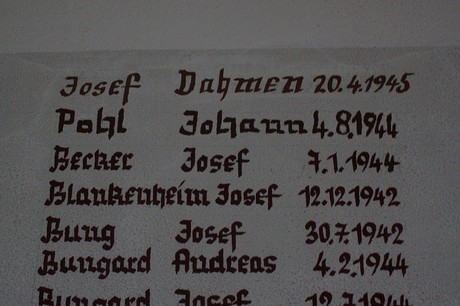 Josef Dahmen 20.4.1945
Pohl Johann 4.8.1944
Becker Josef 7.1.1944
Blankenheim Josef 12.12.1942
Bung Josef 30.7.1942
Bungard Andreas 4.2.1944
Bungard Josef 12.7.1944